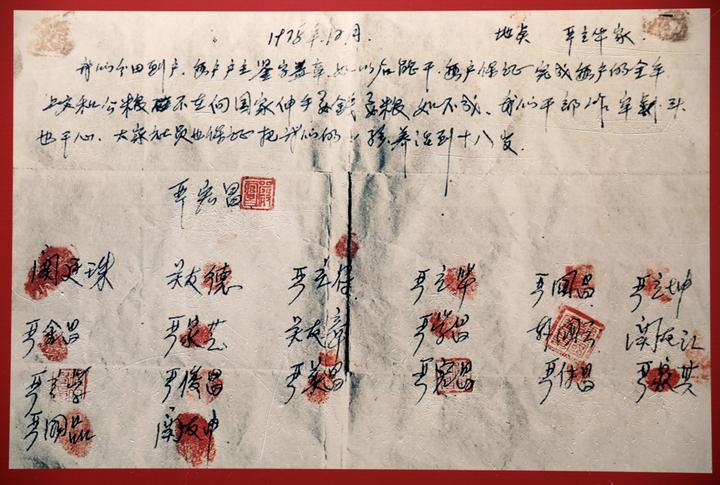 1978年12月. 地点 严立华家
我们分田到户, 每户户主签字盖章, 如以后能干, 每户保证完成每户的全年
上交和公粮 不在向国家伸手要钱要粮 如不成, 我们干部作牢刹头
也干心, 大家社员也保证把我们的小孩养活到十八岁.
严宏昌
关廷珠 关友德 严立符 严立华 严国昌 严立坤
严金昌 严家芝 关友章 严学昌 韩国云 关友江
严立学 严俊昌 严美昌 严宏昌 严付昌 严家其
严国品 关友申